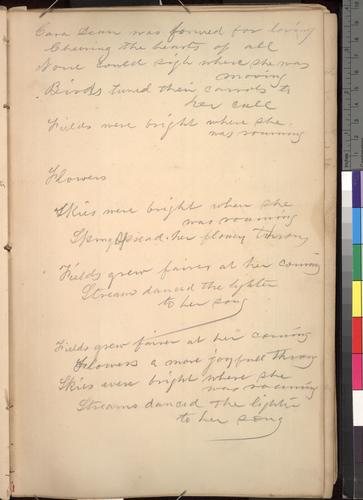 Cara Dean was formed for loving
Cheering the hearts of all
None could sigh where she was
moving
Birds tuned their carrols to
her call
Fields were bright where she
was roaming
Flowers
Skies were bright when she
was roaming
Spring spread her flowery throng
Fields grew fairer at her coming
Stream danced the lighter
to her song
Fields grew fairer at her coming
Flowers a more joyfull throng
Skies were bright where she
was roaming
Streams danced the lighter
to her song